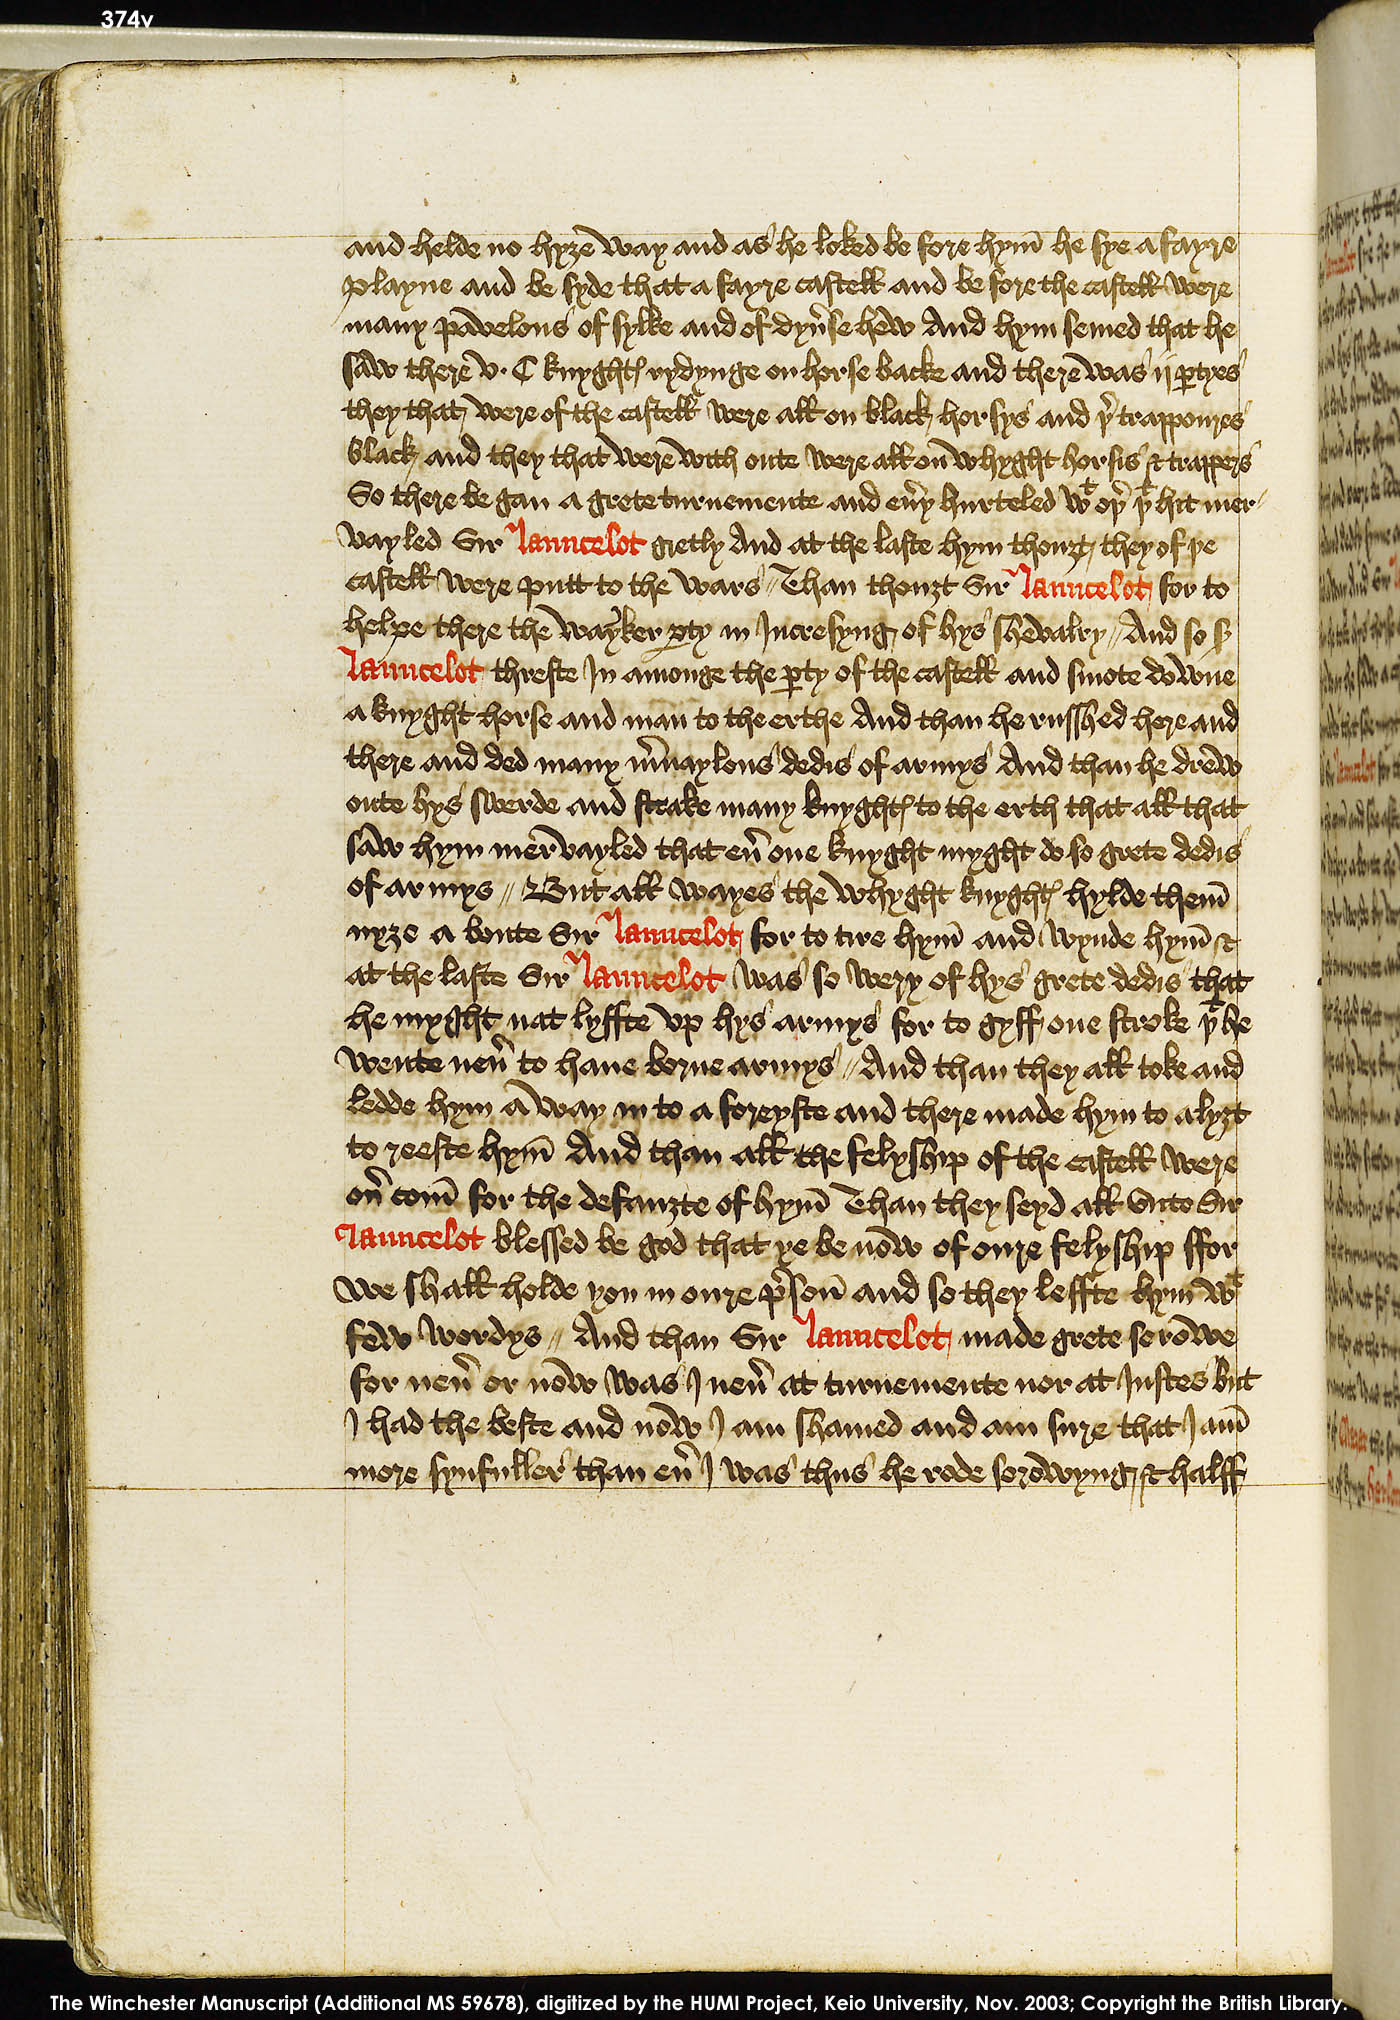 374v
and helde no hyȝe way and as he loked be fore hym̄ he sye a fayre
playne and be syde that a fayre castell and be fore the castell were
many pavelons of sylke and of dyu̾se hew And hym semed that he
saw there v. C knyghtꝭ rydynge on horse backe and there was ij ꝑtyes
they that were of the castell were all on black horsys and þ̾ trappoures
black and they that were with oute were all on whyght horsis & trappers
So there be gan a grete turnemente and eu̾y hurteled wᵗ oþ̾ þᵗ hit mer-
vayled Sir Launcelot gretly And at the laste hym thouȝt they of þe
castell were putt to the wars // Than thouȝt Sir Launcelot for to
helpe there the wayker ꝑty in Incresyng of hys shevalry // And so sꝭ
Launcelot threste In amonge the ꝑty of the castell and smote downe
a knyght horse and man to the erthe And than he russhed here and
there and ded many m̾uaylous dedis of armys And than he drew
oute hys swerde and strake many knyghtꝭ to the erth that all that
saw hym mervayled that eu̾ one knyght myght do so grete dedis
of armys // But all wayes the whyght knyghtꝭ hylde them̄
nyȝe a boute Sir Launcelot for to tire hym̄ and wynde hym̄ &
at the laste Sir Launcelot was so wery of hys grete dedis that
he myght nat lyffte vp hys armys for to gyff one stroke þᵗ he
wente neu̾ to haue borne armys // And than they all toke and
ledde hym a way in to a foreyste and there made hym to alyȝt
to reeste hym̄ And than all the felyship of the castell were
ou̾ com̄ for the defauȝte of hym̄ Than they seyd all vnto Sir
Launcelot blessed be god that ye be now of oure felyship ffor
we shall holde you in oure p̾son̄ and so they leffte hym̄ wᵗ
few wordys // And than Sir Launcelot made grete sorowe
for neu̾ or now was I neu̾ at turnemente nor at Iustes but
I had the beste and now I am shamed and am sure that I am̄
more synfuller than eu̾ I was thus he rode sorowyng & halff
The Winchester Manuscript (Additional MS 59678), digitized by the HUMI Project, Keio University, Nov. 2003; Copyright the British Library.